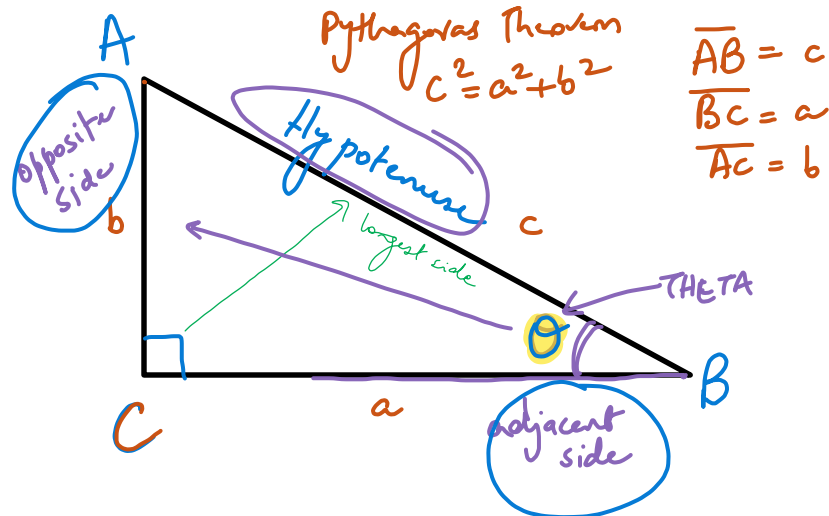 Pythagoras Theorem
c² = a² + b²
A̅B̅ = c
B̅C̅ = a
A̅C̅ = b
A
Opposite
side
b
Hypotenuse
c
largest side
THETA
θ
B
C
a
adjacent
side